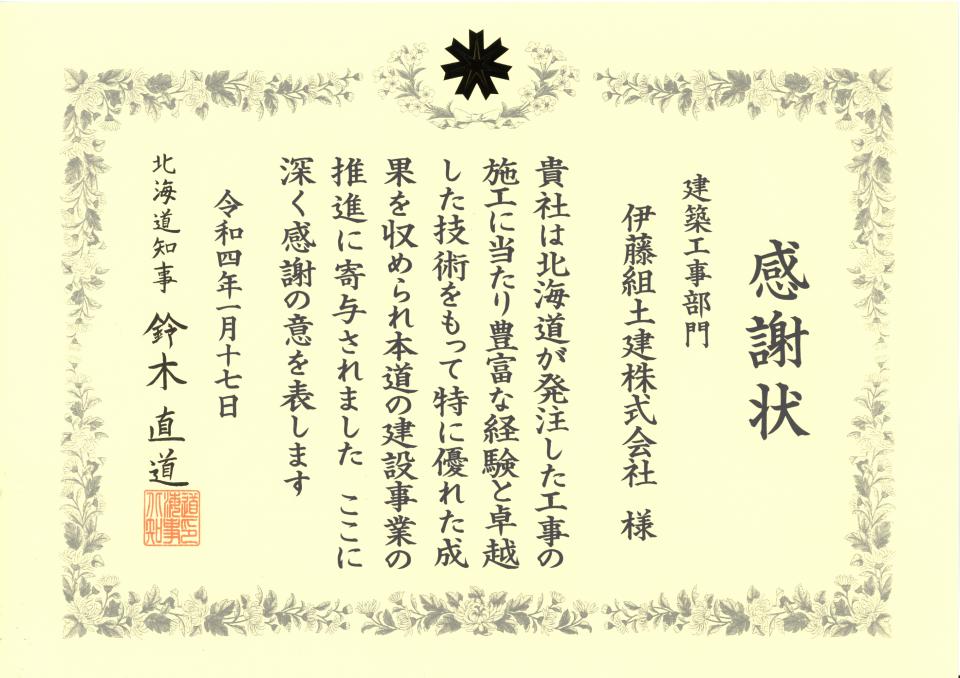 感謝状
建築工事部門
伊藤組土建株式会社 様
貴社は北海道が発注した工事の
施工に当たり豊富な経験と卓越
した技術をもって特に優れた成
果を収められ本道の建設事業の
推進に寄与されました ここに
深く感謝の意を表します
令和四年一月十七日
北海道知事 鈴木直道